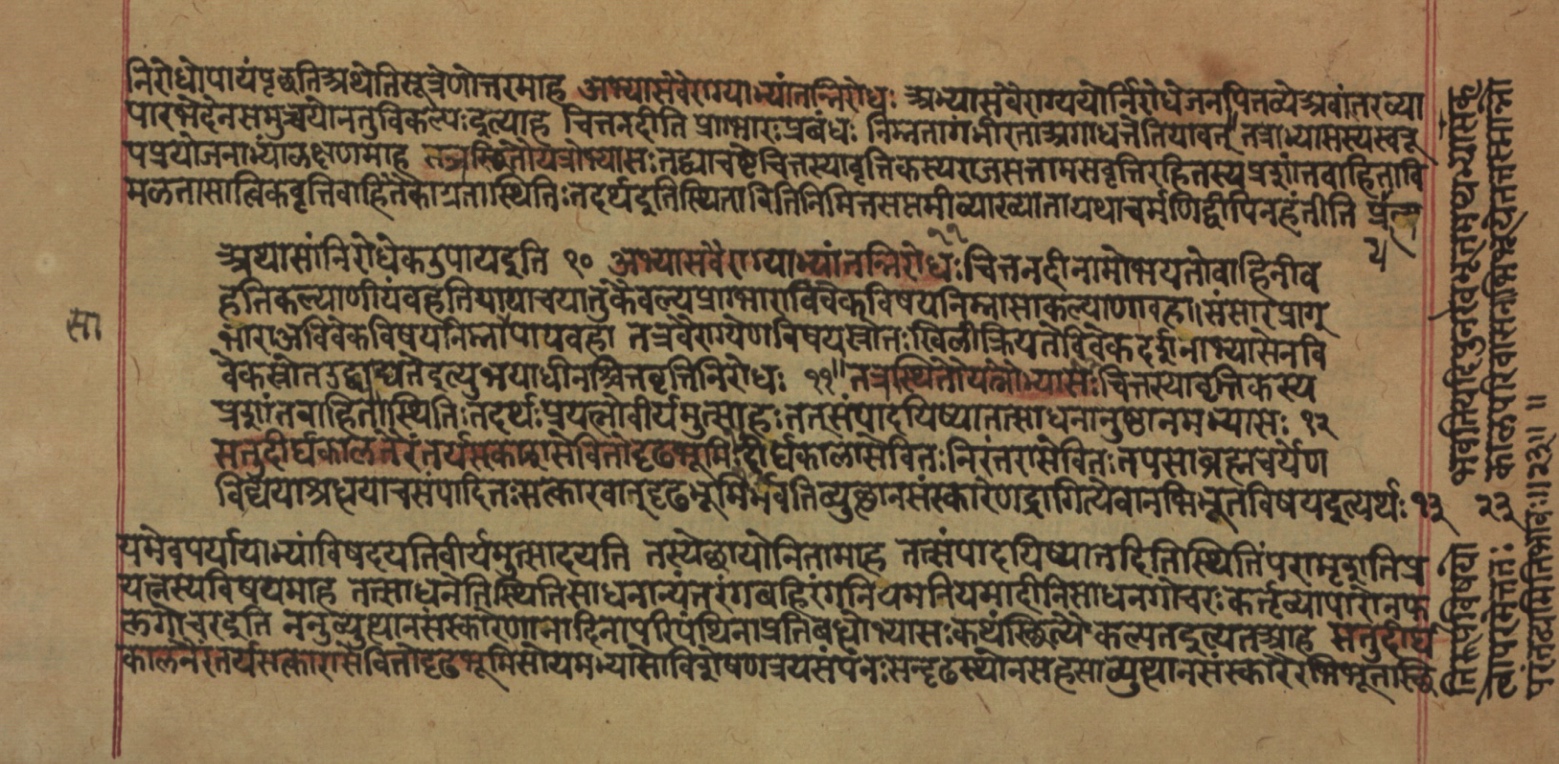 निरोधोपायंपृछतिअथेतिसूत्रेणोत्तरमाह अभ्यासवैराग्याभ्यांतन्निरोधः अभ्यासवैराग्ययोर्निरोधेजनयितव्येअवांतरव्या
पारभेदेनसमुच्चयोनतुविकल्पःइत्याह चित्तनदीति प्राग्भारःप्रबंधः निम्नतागंभीरताअगाधतेतियावत् तत्राभ्यासस्यस्वरू
पप्रयोजनाभ्यांलक्षणमाह तत्रस्थितोयत्नोभ्यासः तद्व्याचष्टेचित्तस्यावृत्तिकस्यराजसतामसवृत्तिरहितस्यप्रशांतवाहितावि
मलतासात्विकवृत्तिवाहितैकाग्रतास्थितिःतदर्थइतिस्थितावितिनिमित्तसप्तमीव्याख्यातायथाचर्मणिद्वीपिनंहंतीति प्रयत्न
अथासांनिरोधेकउपायइति १० अभ्यासवैराग्याभ्यांतन्निरोधःचित्तनदीनामोभयतोवाहिनीव
हतिकल्याणीयंवहतिपापायचयातुकैवल्यप्राग्भाराविवेकविषयनिम्नासाकल्याणावहा॥संसारप्राग्
भाराअविवेकविषयनिम्नापापवहा तत्रवैराग्येणविषयस्रोतःखिलीक्रियतेविवेकदर्शनाभ्यासेनवि
वेकस्रोतउद्घाट्यतेइत्युभयाधीनश्चित्तवृत्तिनिरोधः ११॥तत्रस्थितोयत्नोभ्यासःचित्तस्यावृत्तिकस्य
प्रशांतवाहितास्थितिःतदर्थःप्रयत्नोवीर्यमुत्साहःतत्संपादयिष्यातत्साधनानुष्ठानमभ्यासः १२
सतुदीर्घकालनैरंतर्यसत्कारासेवितोदृढभूमिःदीर्घकालासेवितःनिरंतरासेवितःतपसाब्रह्मचर्येण
विद्ययाश्रद्धयाचसंपादितःसत्कारवान्दृढभूमिर्भवतिव्युत्थानसंस्कारेणद्रागित्येवानभिभूतविषयइत्यर्थः१३
यमेवपर्यायाभ्यांविषदयतिवीर्यमुत्साहयति तस्येछायोनितामाह तत्संपादयिष्यातदितिस्थितिंपरामृशतिप्र
यत्नस्यविषयमाह तत्साधनेतिस्थितिसाधनान्यंतरंगबहिरंगनियमनियमादीनिसाधनगोचरःकर्तृव्यापारोनफ
लगोचरइति ननुव्युत्थानसंस्कारेणानादिनापरिपंथिनाप्रतिबद्धोभ्यासःकथंस्थित्यैकल्पतइत्यतआह सतुदीर्घ
कालनैरंतर्यसत्कारासेवितोदृढभूमिसोयमभ्यासोविशेषणत्रयसंपन्नःसन्दृढस्थोनसहसाव्युत्थानसंस्कारैरभिभूतास्थि
तिरूपविषयो भवतियदिपुनरेवंभूतमप्यभ्यासंकृ
त्वापरमेत्ततः कालपरिवासेनाभिभूयेततस्मान्नो
परंतव्यमितिभावः॥१३॥ ॥
१३
सा